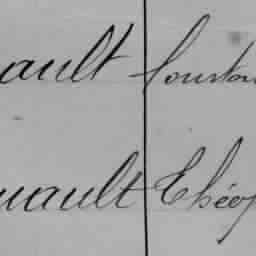 ault Constan
uault Théop